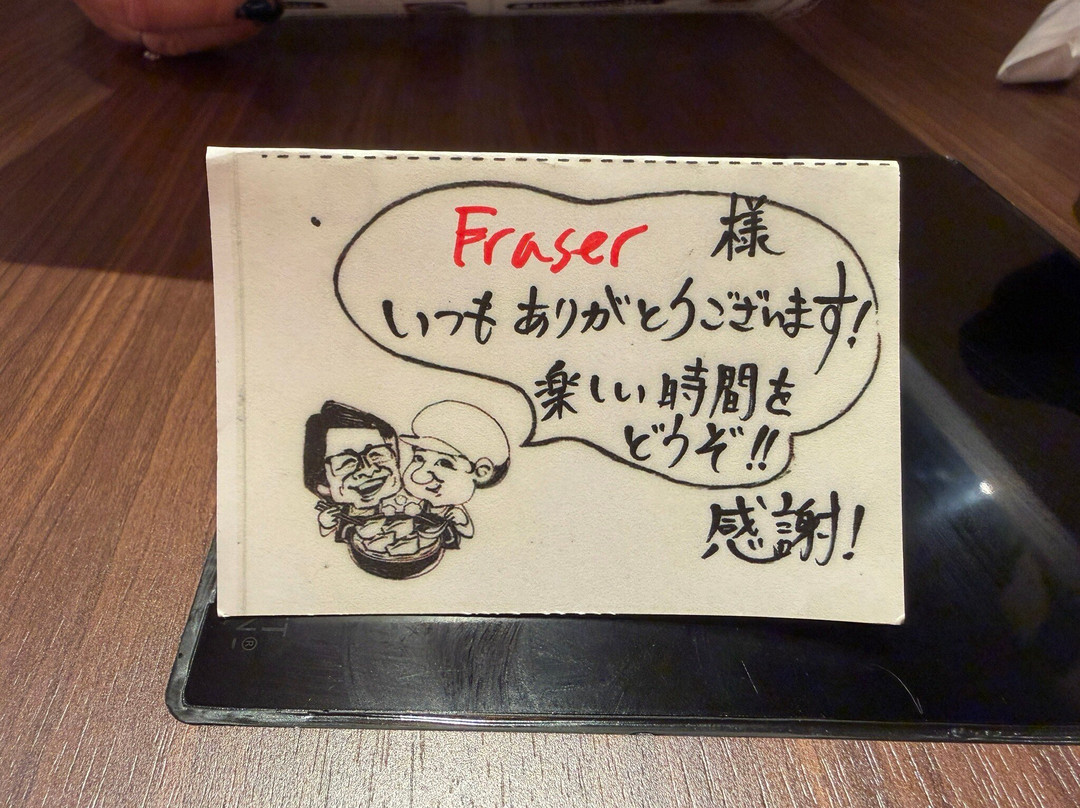 Fraser 様
いつもありがとうございます!
楽しい時間を
どうぞ!!
感謝!